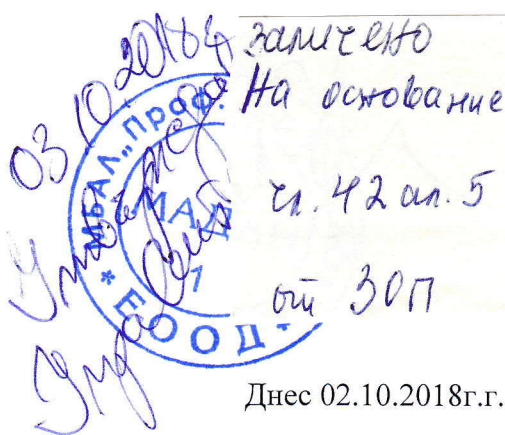 03.10.2018г
заличено
На основание
чл. 42 ал. 5
от ЗОП
МБАЛ „Проф.
МАД
1
* ЕООД *
Днес 02.10.2018г.г.